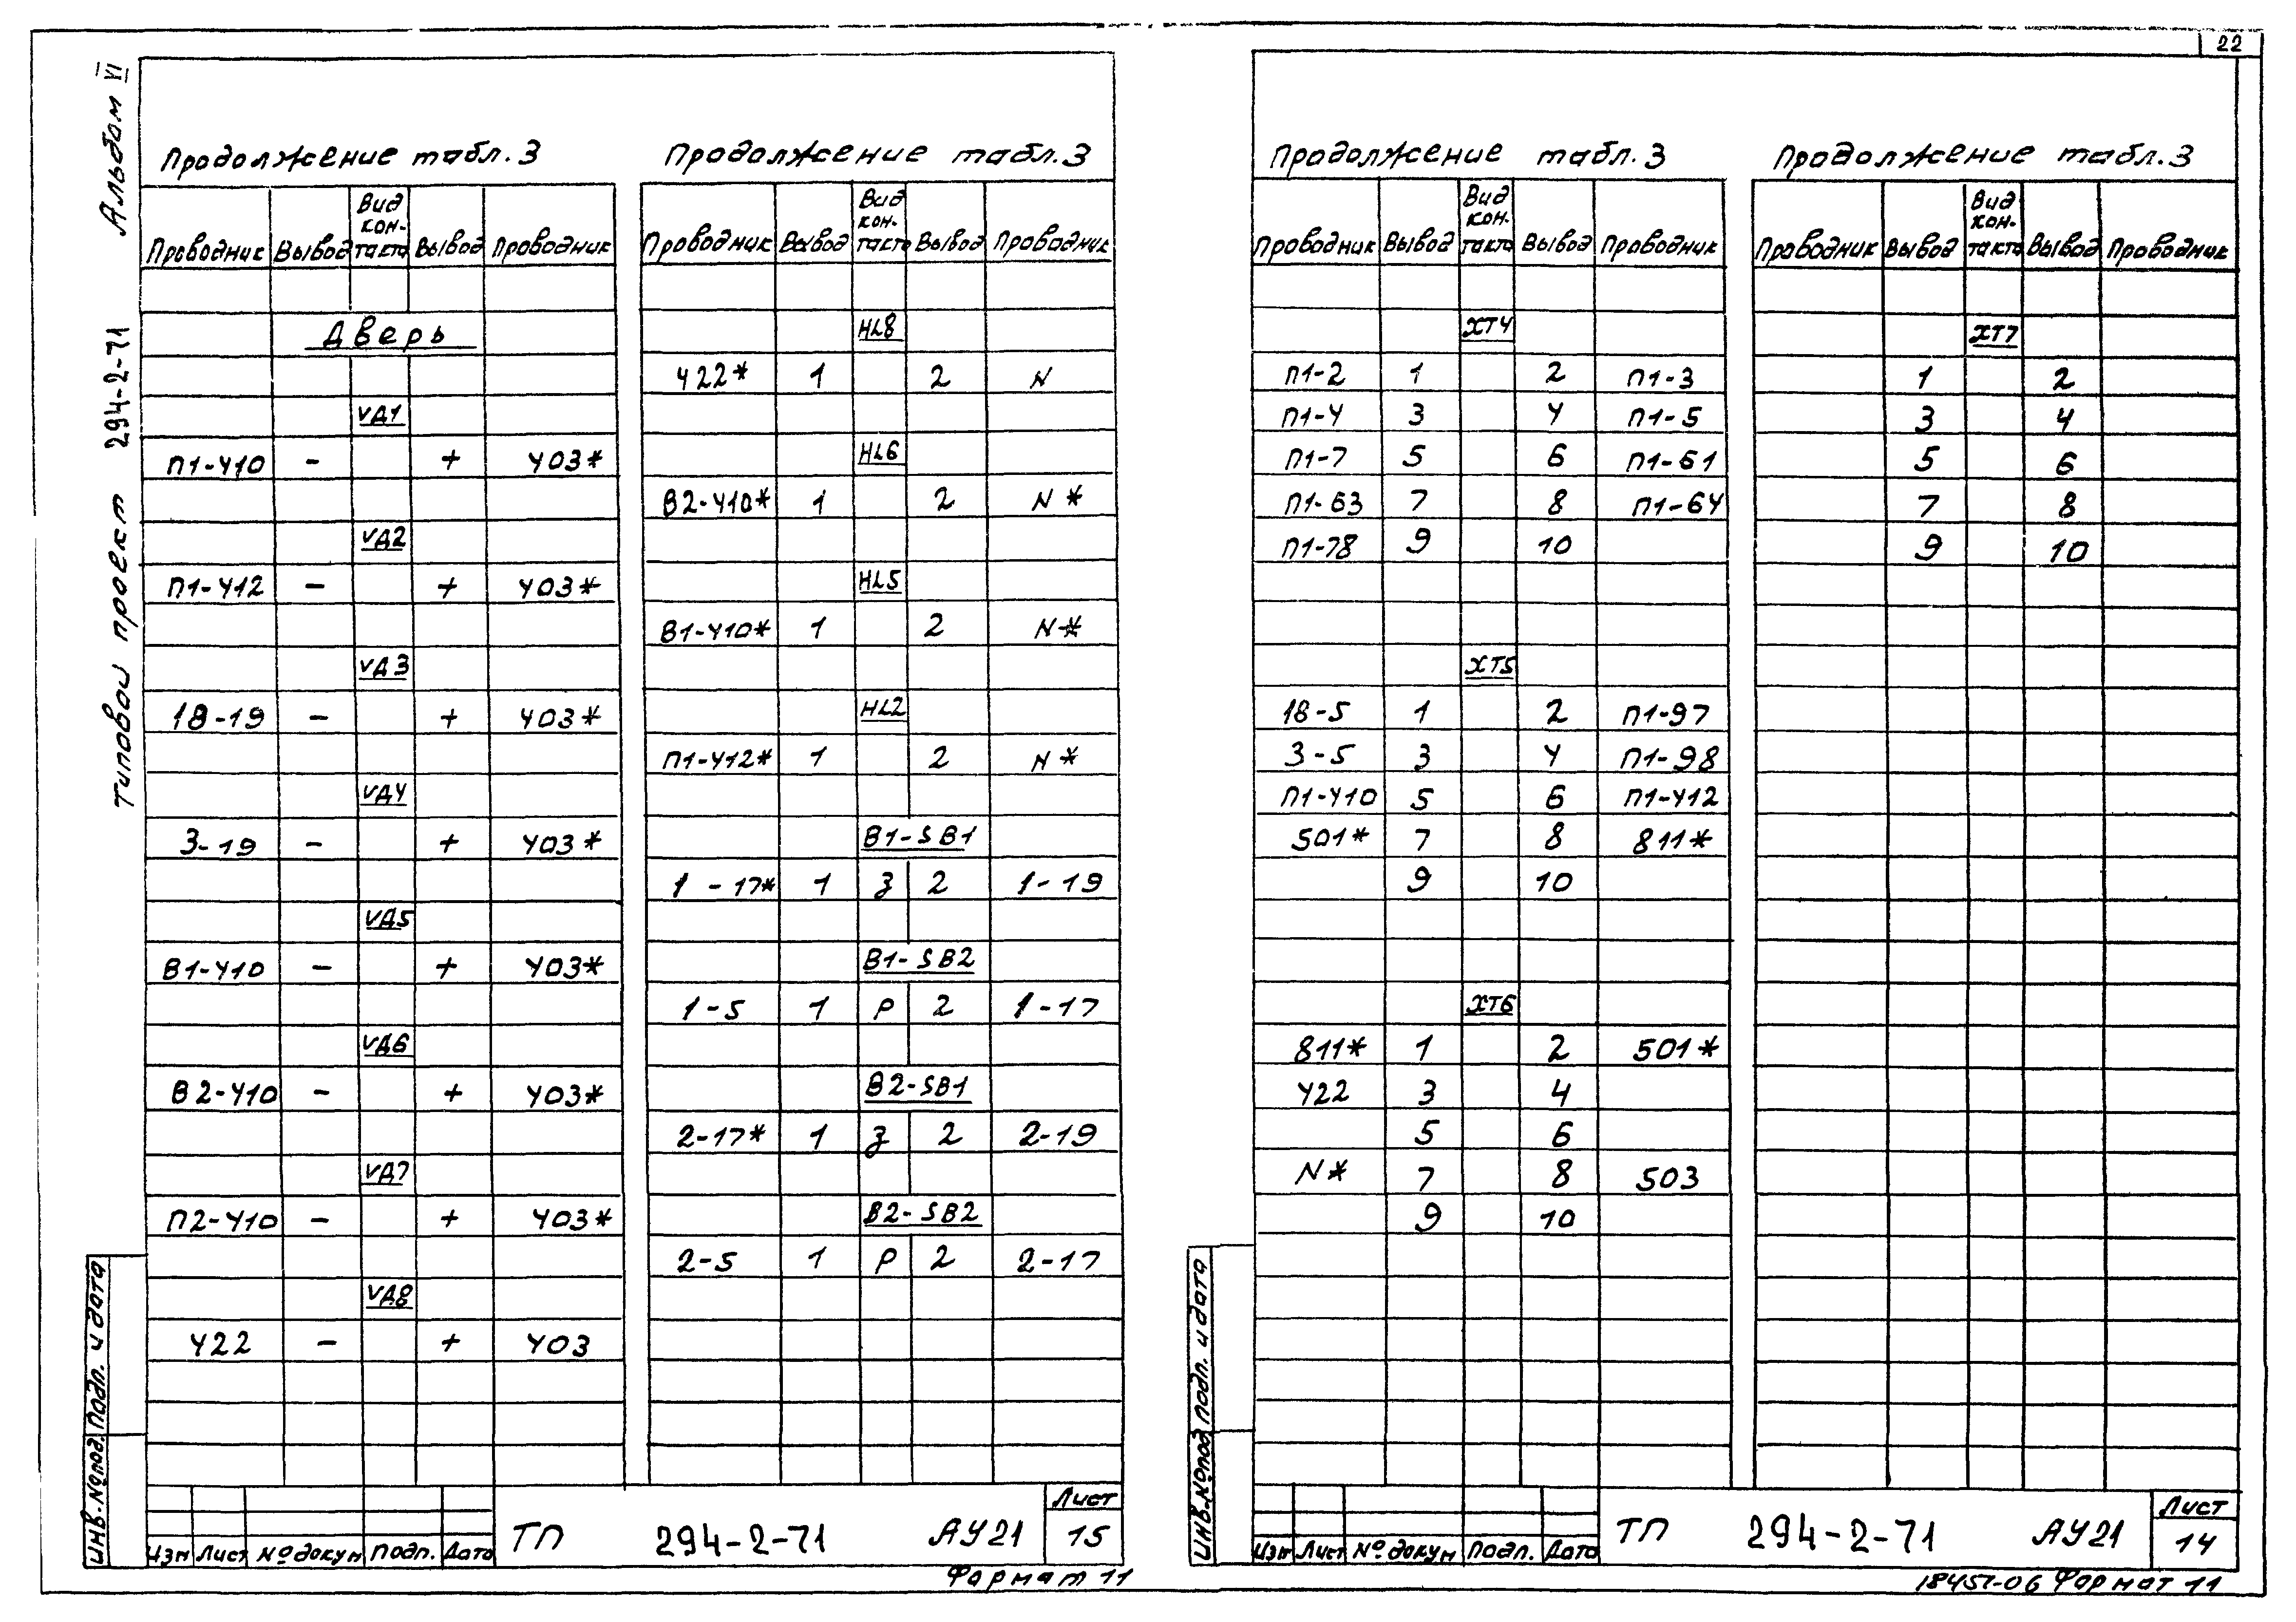 22
Альбом VI
типовой проект 294-2-71
Продолжение табл.3
Проводник Вывод Вид кон- такта Вывод Проводник
Дверь
VД1
П1-410 - + 403*
VД2
П1-412 - + 403*
VД3
18-19 - + 403*
VД4
3-19 - + 403*
VД5
В1-410 - + 403*
VД6
В2-410 - + 403*
VД7
П2-410 - + 403*
VД8
422 - + 403
Продолжение табл.3
Проводник Вывод Вид кон- такта Вывод Проводник
HL8
422* 1 2 N
HL6
В2-410* 1 2 N*
HL5
В1-410* 1 2 N*
HL2
П1-412* 1 2 N*
В1-SB1
1-17* 1 З 2 1-19
В1-SB2
1-5 1 Р 2 1-17
В2-SB1
2-17* 1 З 2 2-19
В2-SB2
2-5 1 Р 2 2-17
Инв.№подл. Подп. и дата
Изм Лист №докум Подп. Дата
ТП 294-2-71 АУ21
Лист
15
Формат 11
Продолжение табл.3
Проводник Вывод Вид кон- такта Вывод Проводник
XT4
П1-2 1 2 П1-3
П1-4 3 4 П1-5
П1-7 5 6 П1-61
П1-63 7 8 П1-64
П1-78 9 10
XT5
18-5 1 2 П1-97
3-5 3 4 П1-98
П1-410 5 6 П1-412
501* 7 8 811*
9 10
XT6
811* 1 2 501*
422 3 4
5 6
N* 7 8 503
9 10
Продолжение табл.3
Проводник Вывод Вид кон- такта Вывод Проводник
XT7
1 2
3 4
5 6
7 8
9 10
Инв.№подл Подп. и дата
Изм Лист №докум Подп. Дата
ТП 294-2-71 АУ21
Лист
14
18457-06 Формат 11